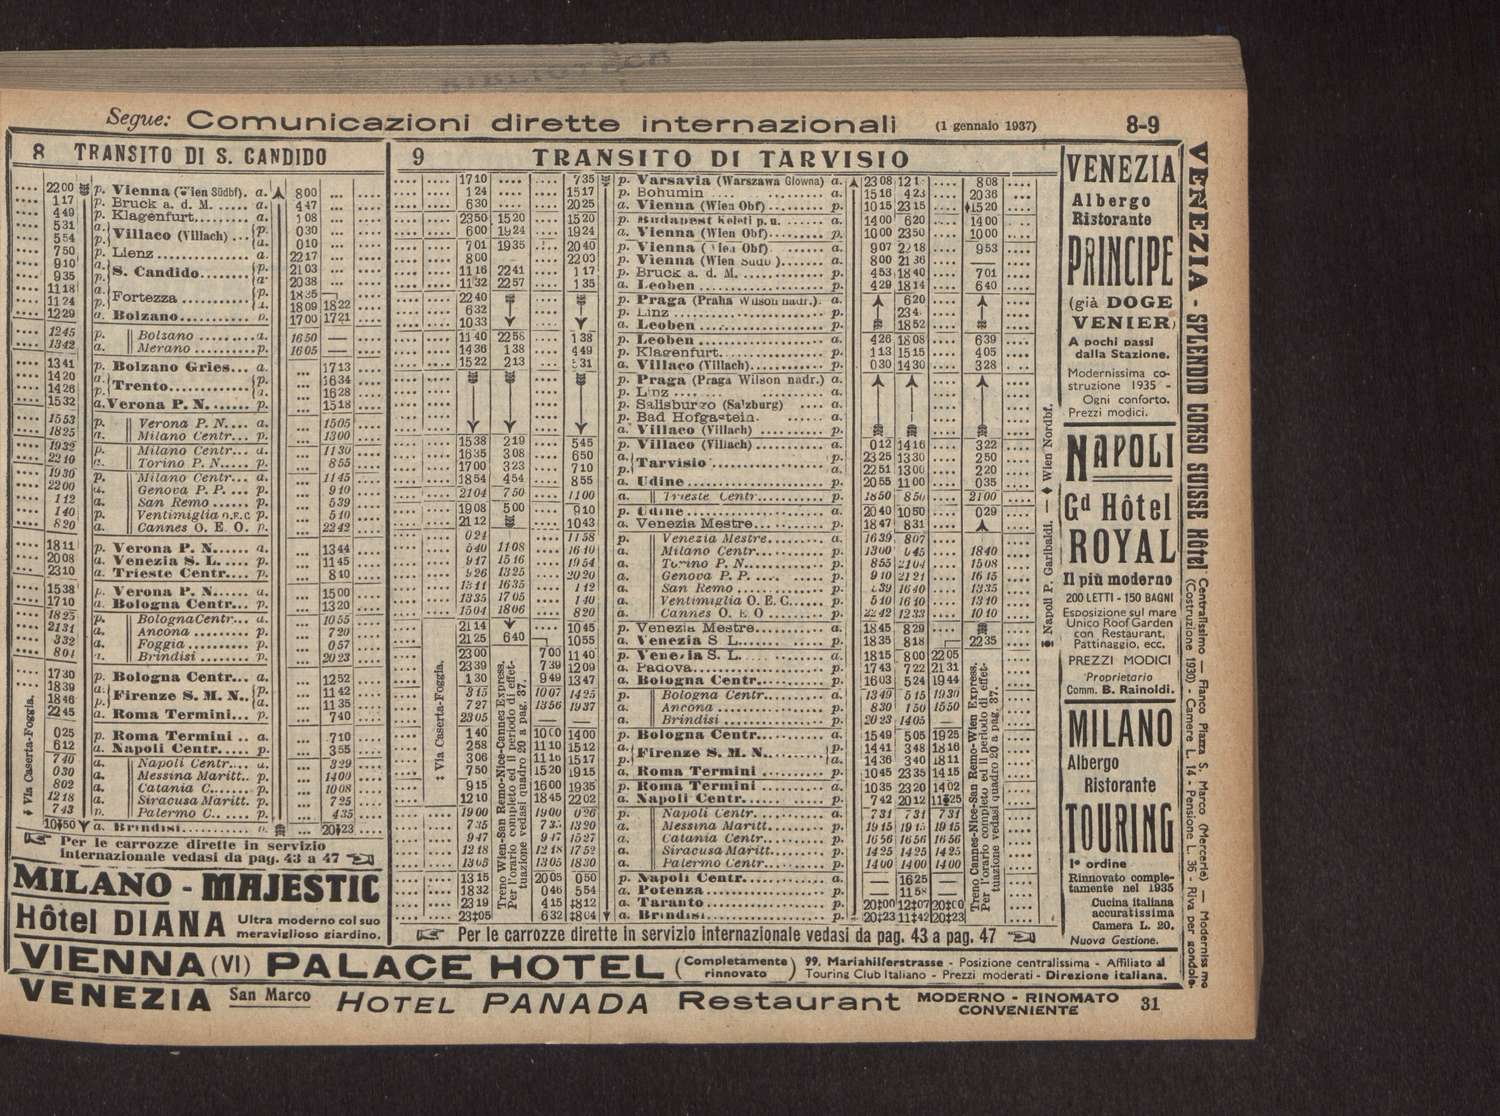 BIBLIOTECA
Segue: Comunicazioni dirette internazionali (1 gennaio 1937) 8-9
8 TRANSITO DI S. CANDIDO
22 00 p. Vienna (Wien Südbf). a. 8 00
1 17 p. Bruck a. d. M. a. 4 47
4 49 p. Klagenfurt a. 1 08
5 31 a. Villaco (Villach) p. 0 30
5 54 p. a. 0 10
7 50 p. Lienz a. 22 17
9 10 a. S. Candido p. 21 03
9 35 p. a. 20 38
11 18 a. Fortezza p. 18 35
11 24 p. a. 18 09 18 22
12 29 a. Bolzano p. 17 00 17 21
12 45 p. Bolzano a. 16 50 —
13 42 a. Merano p. 16 05 —
13 41 p. Bolzano Gries a. 17 13
14 20 a. Trento p. 16 34
14 26 p. a. 16 28
15 32 a. Verona P. N. p. 15 18
15 53 p. Verona P. N. a. 15 05
18 25 a. Milano Centr. p. 13 00
19 32 p. Milano Centr. a. 11 30
22 10 a. Torino P. N. p. 8 55
19 30 p. Milano Centr. a. 11 45
22 00 a. Genova P. P. p. 9 10
1 12 a. San Remo p. 5 39
1 40 a. Ventimiglia o.e.c p. 5 10
8 20 a. Cannes O. E. O. p. 22 42
18 11 p. Verona P. N. a. 13 44
20 08 a. Venezia S. L. p. 11 45
23 10 a. Trieste Centr. p. 8 40
15 38 p. Verona P. N. a. 15 00
17 10 a. Bologna Centr. p. 13 20
18 25 p. Bologna Centr. a. 10 55
21 31 a. Ancona p. 7 20
3 32 a. Foggia p. 0 57
8 01 a. Brindisi p. 20 23
17 30 p. Bologna Centr. a. 12 52
18 39 a. Firenze S. M. N. p. 11 42
18 46 p. a. 11 35
22 45 a. Roma Termini p. 7 40
0 25 p. Roma Termini a. 7 10
6 12 a. Napoli Centr. p. 3 55
7 40 p. Napoli Centr. a. 3 29
0 30 a. Messina Maritt. p. 14 00
8 02 a. Catania C. p. 10 08
12 18 a. Siracusa Maritt. p. 7 25
7 43 a. Palermo C. p. 4 35
10‡50 a. Brindisi p. 20‡23
‡ Via Caserta-Foggia.
Per le carrozze dirette in servizio
internazionale vedasi da pag. 43 a 47
9 TRANSITO DI TARVISIO
17 10 7 35 p. Varsavia (Warszawa Glowna) a. 23 08 8 08
1 24 15 17 p. Bohumin a. 15 16 4 23 20 36
6 30 20 25 a. Vienna (Wien Obf) p. 10 15 23 15 15 20
23 50 15 20 15 20 p. Budapest Keleti p. u. a. 14 00 6 20 14 00
6 00 19 24 19 24 a. Vienna (Wien Obf) p. 10 00 23 50 10 00
7 01 19 35 20 40 p. Vienna (Wien Obf) a. 9 07 22 18 9 53
8 00 22 00 p. Vienna (Wien Südb) a. 8 00 21 36 —
11 16 22 41 1 17 p. Bruck a. d. M. a. 4 53 18 40 7 01
11 32 22 57 1 35 a. Leoben p. 4 29 18 14 6 40
22 40 p. Praga (Praha Wilson nadr.) a. 6 20
6 32 p. Linz a.
10 33 a. Leoben p. 18 52
11 40 22 58 1 38 p. Leoben a. 4 26 18 08 6 39
14 36 1 38 4 49 p. Klagenfurt a. 1 13 15 15 4 05
15 22 2 13 5 31 a. Villaco (Villach) p. 0 30 14 30 3 28
p. Praga (Praga Wilson nadr.) a.
p. Linz a.
p. Salisburgo (Salzburg) a.
p. Bad Hofgastein a.
a. Villaco (Villach) p.
15 38 2 19 5 45 p. Villaco (Villach) a. 0 12 14 16 3 22
16 35 3 08 6 50 a. Tarvisio p. 23 25 13 30 2 50
17 00 3 23 7 10 p. a. 22 51 13 00 2 20
18 54 4 54 8 55 a. Udine p. 20 55 11 00 0 35
21 04 7 50 11 00 a. Trieste Centr. p. 18 50 8 50 21 00
19 08 5 00 9 10 p. Udine a. 20 40 10 50 0 29
21 12 10 43 a. Venezia Mestre p. 18 47 8 31
0 24 11 58 p. Venezia Mestre a. 16 39 8 07
5 40 11 08 16 10 a. Milano Centr. p. 13 00 6 45 18 40
9 17 15 16 19 54 a. Torino P. N. p. 8 55 21 04 15 08
9 26 13 25 20 20 a. Genova P. P. p. 9 10 21 21 16 15
13 11 16 35 1 12 a. San Remo p. 5 39 16 40 13 35
13 35 17 05 1 40 a. Ventimiglia O. E. C. p. 5 10 16 10 13 10
15 04 18 06 8 20 a. Cannes O. E. O. p. 22 42 12 33 10 10
21 14 10 45 p. Venezia Mestre a. 18 45 8 29
21 25 6 40 10 55 a. Venezia S. L. p. 18 35 8 18 — 22 35
23 00 7 00 11 40 p. Venezia S. L. a. 18 15 8 00 22 05
23 39 7 39 12 09 a. Padova p. 17 43 7 22 21 31
1 30 9 49 13 47 a. Bologna Centr. p. 16 03 5 24 19 44
3 15 10 07 14 25 p. Bologna Centr. a. 13 49 5 15 19 30
7 27 13 56 19 37 a. Ancona p. 8 30 1 50 15 50
23 05 — — a. Brindisi p. 20 23 14 05 —
1 40 10 00 14 00 p. Bologna Centr. a. 15 49 5 05 19 25
2 58 11 10 15 12 a. Firenze S. M. N. p. 14 41 3 48 18 16
3 06 11 16 15 17 p. a. 14 36 3 40 18 11
7 50 15 20 19 15 a. Roma Termini p. 10 45 23 35 14 15
9 15 16 00 19 35 p. Roma Termini a. 10 35 23 20 14 02
12 10 18 45 22 02 a. Napoli Centr. p. 7 42 20 12 11‡25
19 00 19 00 0 26 p. Napoli Centr. a. 7 31 7 31 7 31
7 35 13 20 a. Messina Maritt. p. 19 15 19 15 19 15
9 47 9 47 15 27 a. Catania Centr. p. 16 56 16 56 16 56
12 18 12 18 17 52 a. Siracusa Maritt. p. 14 25 14 25 14 25
13 05 13 05 18 30 a. Palermo Centr. p. 14 00 14 00 14 00
13 15 20 05 0 50 p. Napoli Centr. a. — 16 25 —
18 32 0 46 5 54 a. Potenza p. — 11 58 —
23 19 4 15 8‡12 a. Taranto p. 20‡00 12‡07 20‡00
23‡05 6 32 ‡8 04 a. Brindisi p. 20‡23 11‡42 20‡23
‡ Via Caserta-Foggia.
Treno Wien-San Remo-Nice-Cannes Express.
Per l'orario completo ed il periodo di effettuazione vedasi quadro 20 a pag. 37.
Treno Cannes-Nice-San Remo-Wien Express.
Per l'orario completo ed il periodo di effettuazione vedasi quadro 20 a pag. 37.
Napoli P. Garibaldi. — ♦ Wien Nordbf.
Per le carrozze dirette in servizio internazionale vedasi da pag. 43 a pag. 47
VENEZIA
Albergo
Ristorante
PRINCIPE
(già DOGE
VENIER)
A pochi passi
dalla Stazione.
Modernissima co-
struzione 1935 -
Ogni conforto.
Prezzi modici.
NAPOLI
Gd Hôtel
ROYAL
Il più moderno
200 LETTI - 150 BAGNI
Esposizione sul mare
Unico Roof Garden
con Restaurant,
Pattinaggio, ecc.
PREZZI MODICI
Proprietario
Comm. B. Rainoldi.
MILANO
Albergo
Ristorante
TOURING
Iº ordine
Rinnovato comple-
tamente nel 1935
Cucina italiana
accuratissima
Camera L. 20.
Nuova Gestione.
VENEZIA - SPLENDID CORSO SUISSE Hôtel Centralissimo — Fianco Piazza S. Marco (Mercerie) — Modernissimo
(Costruzione 1930) - Camere L. 14 - Pensione L. 36 - Riva per gondole-
MILANO - MAJESTIC
Hôtel DIANA Ultra moderno col suo
meraviglioso giardino.
VIENNA (VI) PALACE HOTEL (Completamente rinnovato) 99. Mariahilferstrasse - Posizione centralissima - Affiliato al
Touring Club Italiano - Prezzi moderati - Direzione italiana.
VENEZIA San Marco HOTEL PANADA Restaurant MODERNO - RINOMATO
CONVENIENTE 31